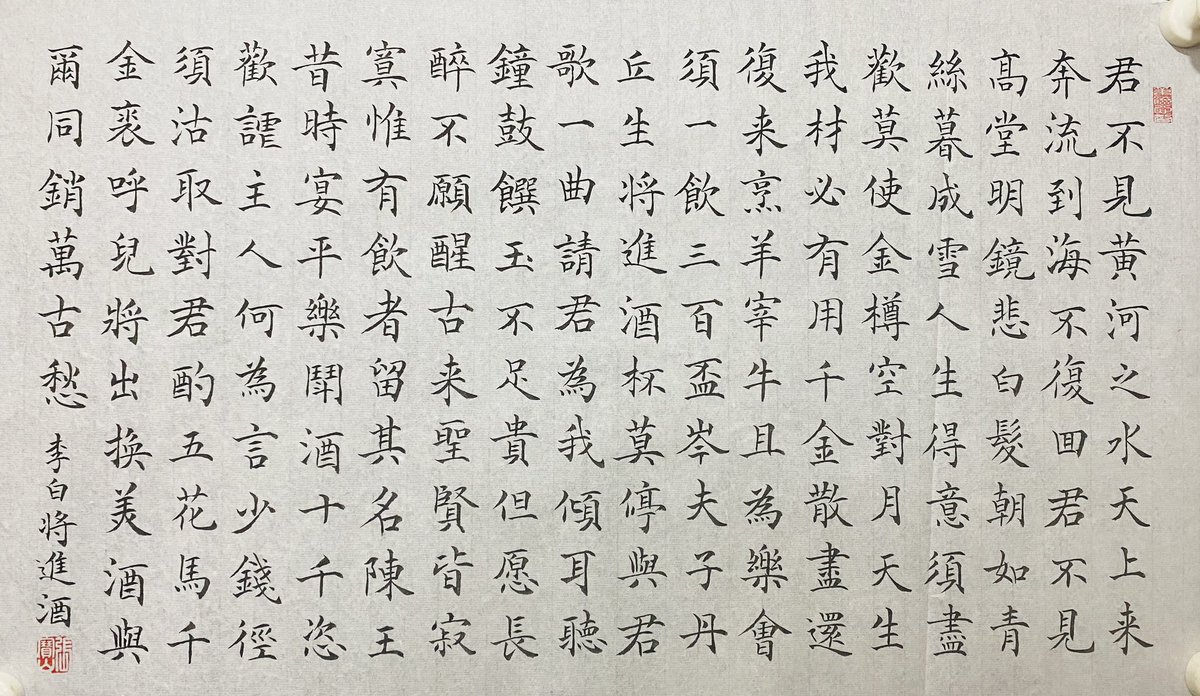 君不見黃河之水天上来
奔流到海不復囬君不見
髙堂明鏡悲白髮朝如青
絲暮成雪人生得意須盡
歡莫使金樽空對月天生
我材必有用千金散盡還
復来烹羊宰牛且為樂會
須一飲三百盃岑夫子丹
丘生将進酒杯莫停與君
歌一曲請君為我傾耳聽
鐘鼓饌玉不足貴但愿長
醉不願醒古来聖賢皆寂
寞惟有飲者留其名陳王
昔時宴平樂鬪酒十千恣
歡謔主人何為言少錢徑
須沽取對君酌五花馬千
金裘呼兒將出換美酒與
爾同銷萬古愁
李白将進酒